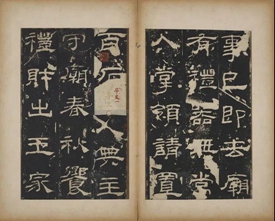 事已即去廟
有禮器無常
人掌領請置
百石人典主
守廟春秋饗
禮財出王家